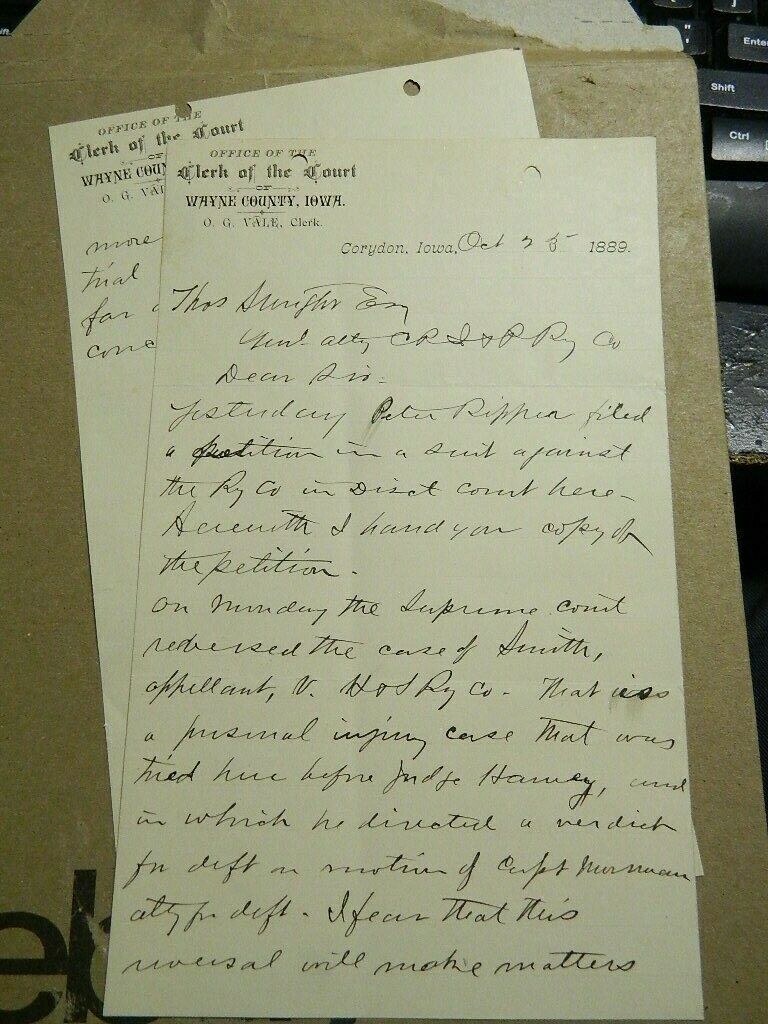 OFFICE OF THE
Clerk of the Court
WAYNE COUN
O. G. VAL
more
trial
far
conc
OFFICE OF THE
Clerk of the Court
OF
WAYNE COUNTY, IOWA.
O. G. VALE, Clerk.
Corydon, Iowa, Oct 25 1889.
Thos Esq
Genl atty C R I & P Ry Co
Dear Sir-
Yesterday Peter Ripper filed
a petition in a suit against
the Ry Co in Dist court here-
Herewith I hand you copy of
the petition.
On Monday the Supreme court
reversed the case of Smith,
appellant, V. H & S Ry Co - That is
a personal injury case that was
tried here before Judge Harvey, and
in which he directed a verdict
for deft on motion of Capt
atty for deft - I fear that this
reversal will make matters
Shift
Ctrl
Enter